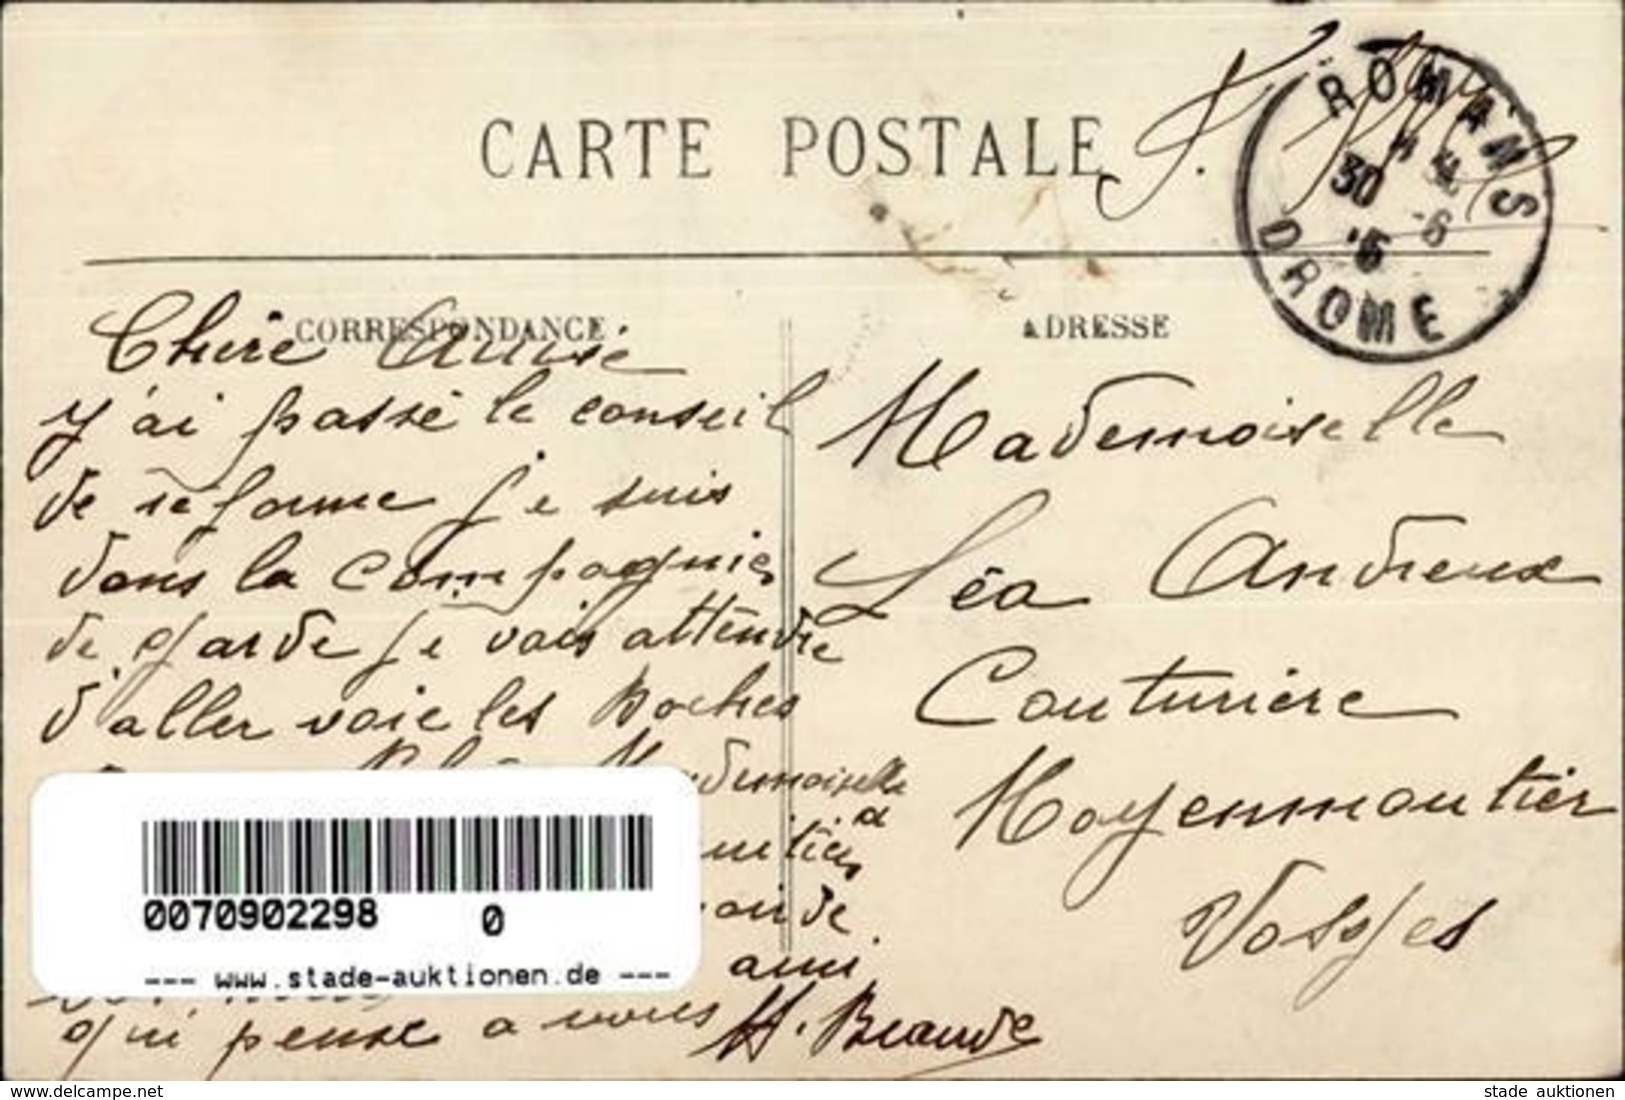 CARTE POSTALE
F.
ROMANS
30
6
DROME
CORRESPONDANCE
ADRESSE
Chère Amie
J'ai passé le conseil
de réforme je suis
dans la Compagnie
de garde je vais attendre
d'aller voir les Boches
Mademoiselle
à
amitiés
ami
qui pense a vous H. Beaude
Mademoiselle
Léa Andreux
Couturière
Moyenmoutier
Vosges
0070902298 0
--- www.stade-auktionen.de ---
www.delcampe.net
stade auktionen